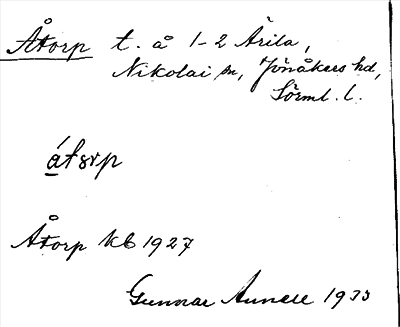 Åtorp t. å 1-2 Ärila,
Nikolai sn, Jönåkers hd,
Sörml. l.
átorp
Åtorp kb 1927
Gunnar 1933